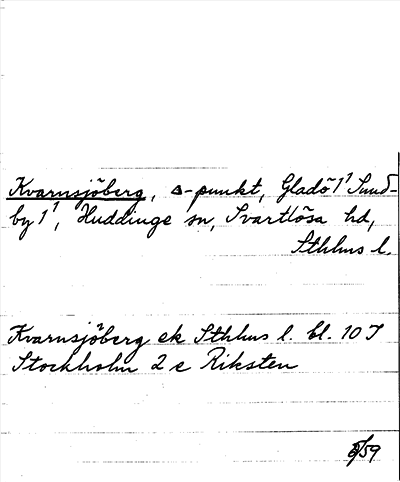 Kvarnsjöberg, △-punkt, Gladö 1¹ Sund-
by 1¹, Huddinge sn, Svartlösa hd,
Sthlms l.
Kvarnsjöberg ek Sthlms l. bl. 10 I
Stockholm 2 e Riksten
/59